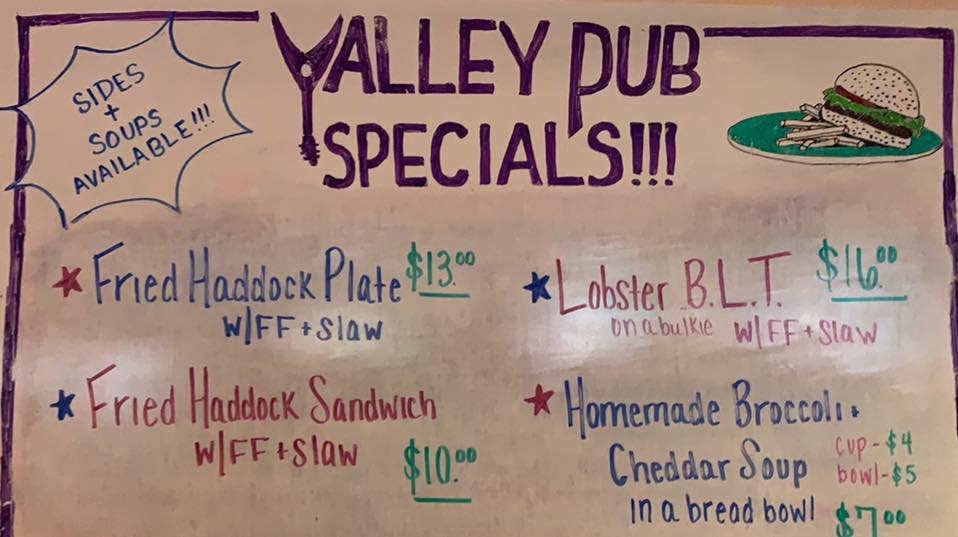 SIDES
+
SOUPS
AVAILABLE!!!
VALLEY PUB
SPECIALS!!!
Fried Haddock Plate $13.00
W/FF + Slaw
Fried Haddock Sandwich
W/FF + Slaw
$10.00
Lobster B.L.T. $16.00
on a bulkie W/FF + Slaw
Homemade Broccoli +
Cheddar Soup
cup - $4
bowl - $5
in a bread bowl $7.00